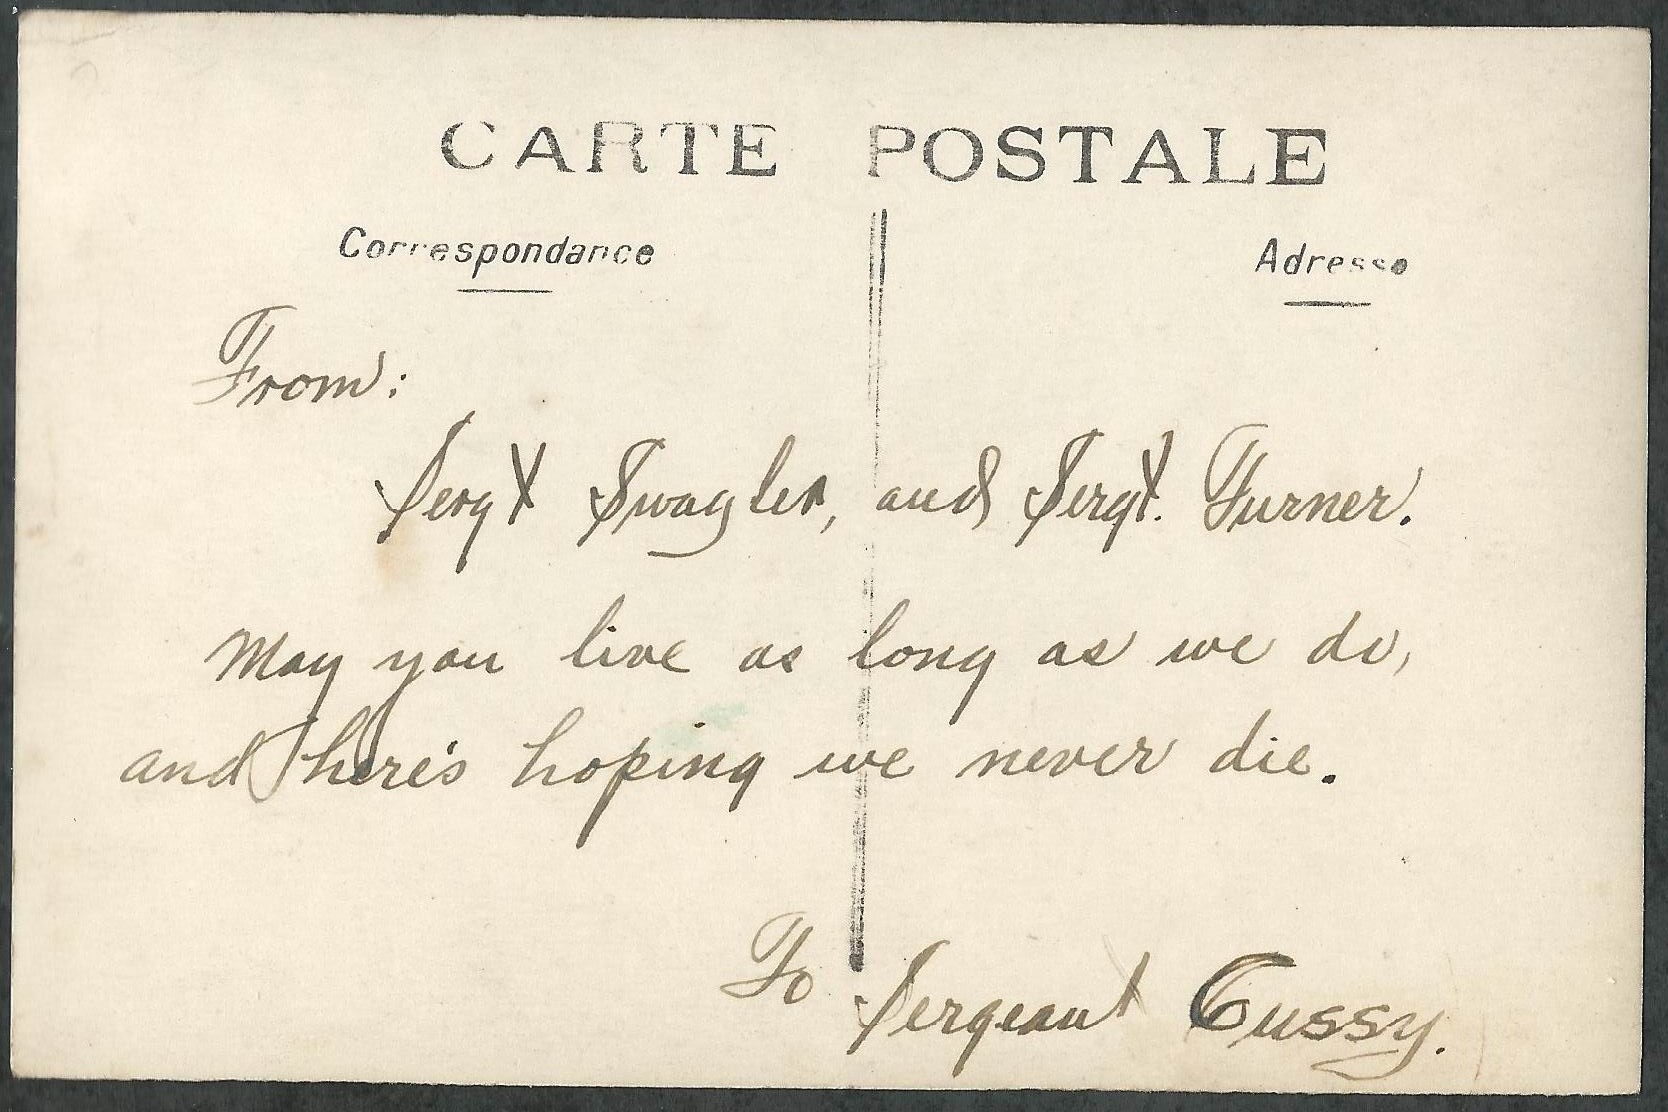 CARTE POSTALE
Correspondance
Adresse
From:
Sergt Swagler, and Sergt. Turner.
May you live as long as we do,
and here's hoping we never die.
To Sergeant Tussy.